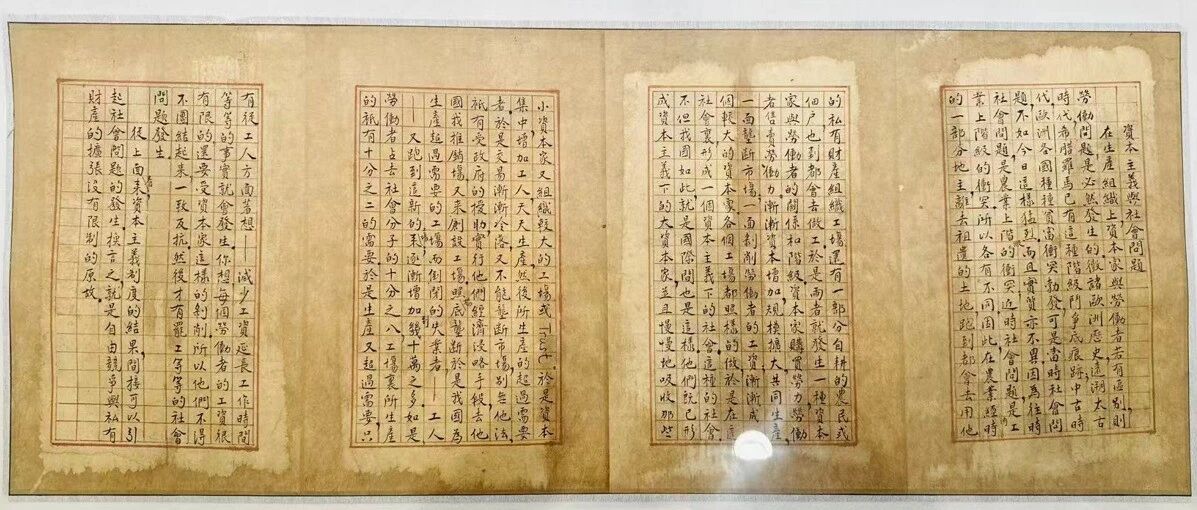 資本主義與社會問題
在生產組織上資本家與勞働者若有區別,則
勞働問題是必然發生的徵諸歐洲歷史遠溯太古
時代希腊羅馬已有這種階級鬥爭底痕跡中古時
代歐洲各國種種貧富衝突勃發可是當時社會問
題,不如今日這樣猛烈而且實質亦不異因為往時
社會問題是農業上階的衝突近時社會問題是工
業上階級的衝突所以各有不同因此在農業經時
的一部分地主,離去祖遺的土地,跑到都會去用他
的私有財產組織工場還有一部分自耕的農民或
佃户也到都會去做工於是兩者就發生一種資本
家與勞働者的關係和階級資本家購買勞力勞働
者售賣勞働力漸漸資本增加規模擴大共同生產
一面壟斷市場一面剝削勞働者的工資漸漸成
個較大的資本家各個工場都照樣的做於是在
社會裏形成一個資本主義下的社會這種的社會
不但我國如此就是國際間也是這樣他們既已形
成資本主義下的大資本家並且慢慢地吸收那些
小資本家又組織較大的工場或Trust於是資本
集中增加工人天天生產然後所生產的超過需要
者於是交易漸漸冷落又不能壟斷市場別無他法
祇有受政府的授助實行他們經濟浸略手段去他
國找推銷場又來創設工場照底壟斷於是我國為
生產超過需要的工場而倒閉的失業者——工人
——又跑到這新的來逐漸增加幾十萬之多如是
勞働者占去社會分子的十分之八工場裏所生產
的祇有十分之二的需要於是生產又超過需要只
有從工人方面著想——減少工資延長工作時間
等等的事實就會發生你想每個勞働者的工資很
有限的還要受資本家這樣的剝削所以他們不得
不團結起來一致反抗然後才有罷工等等的社會
問題發生
從上面看來資本主義制度的結果間接可以引
起社會問題的發生換言之就是自由競爭與私有
財產的擴張沒有限制的原故